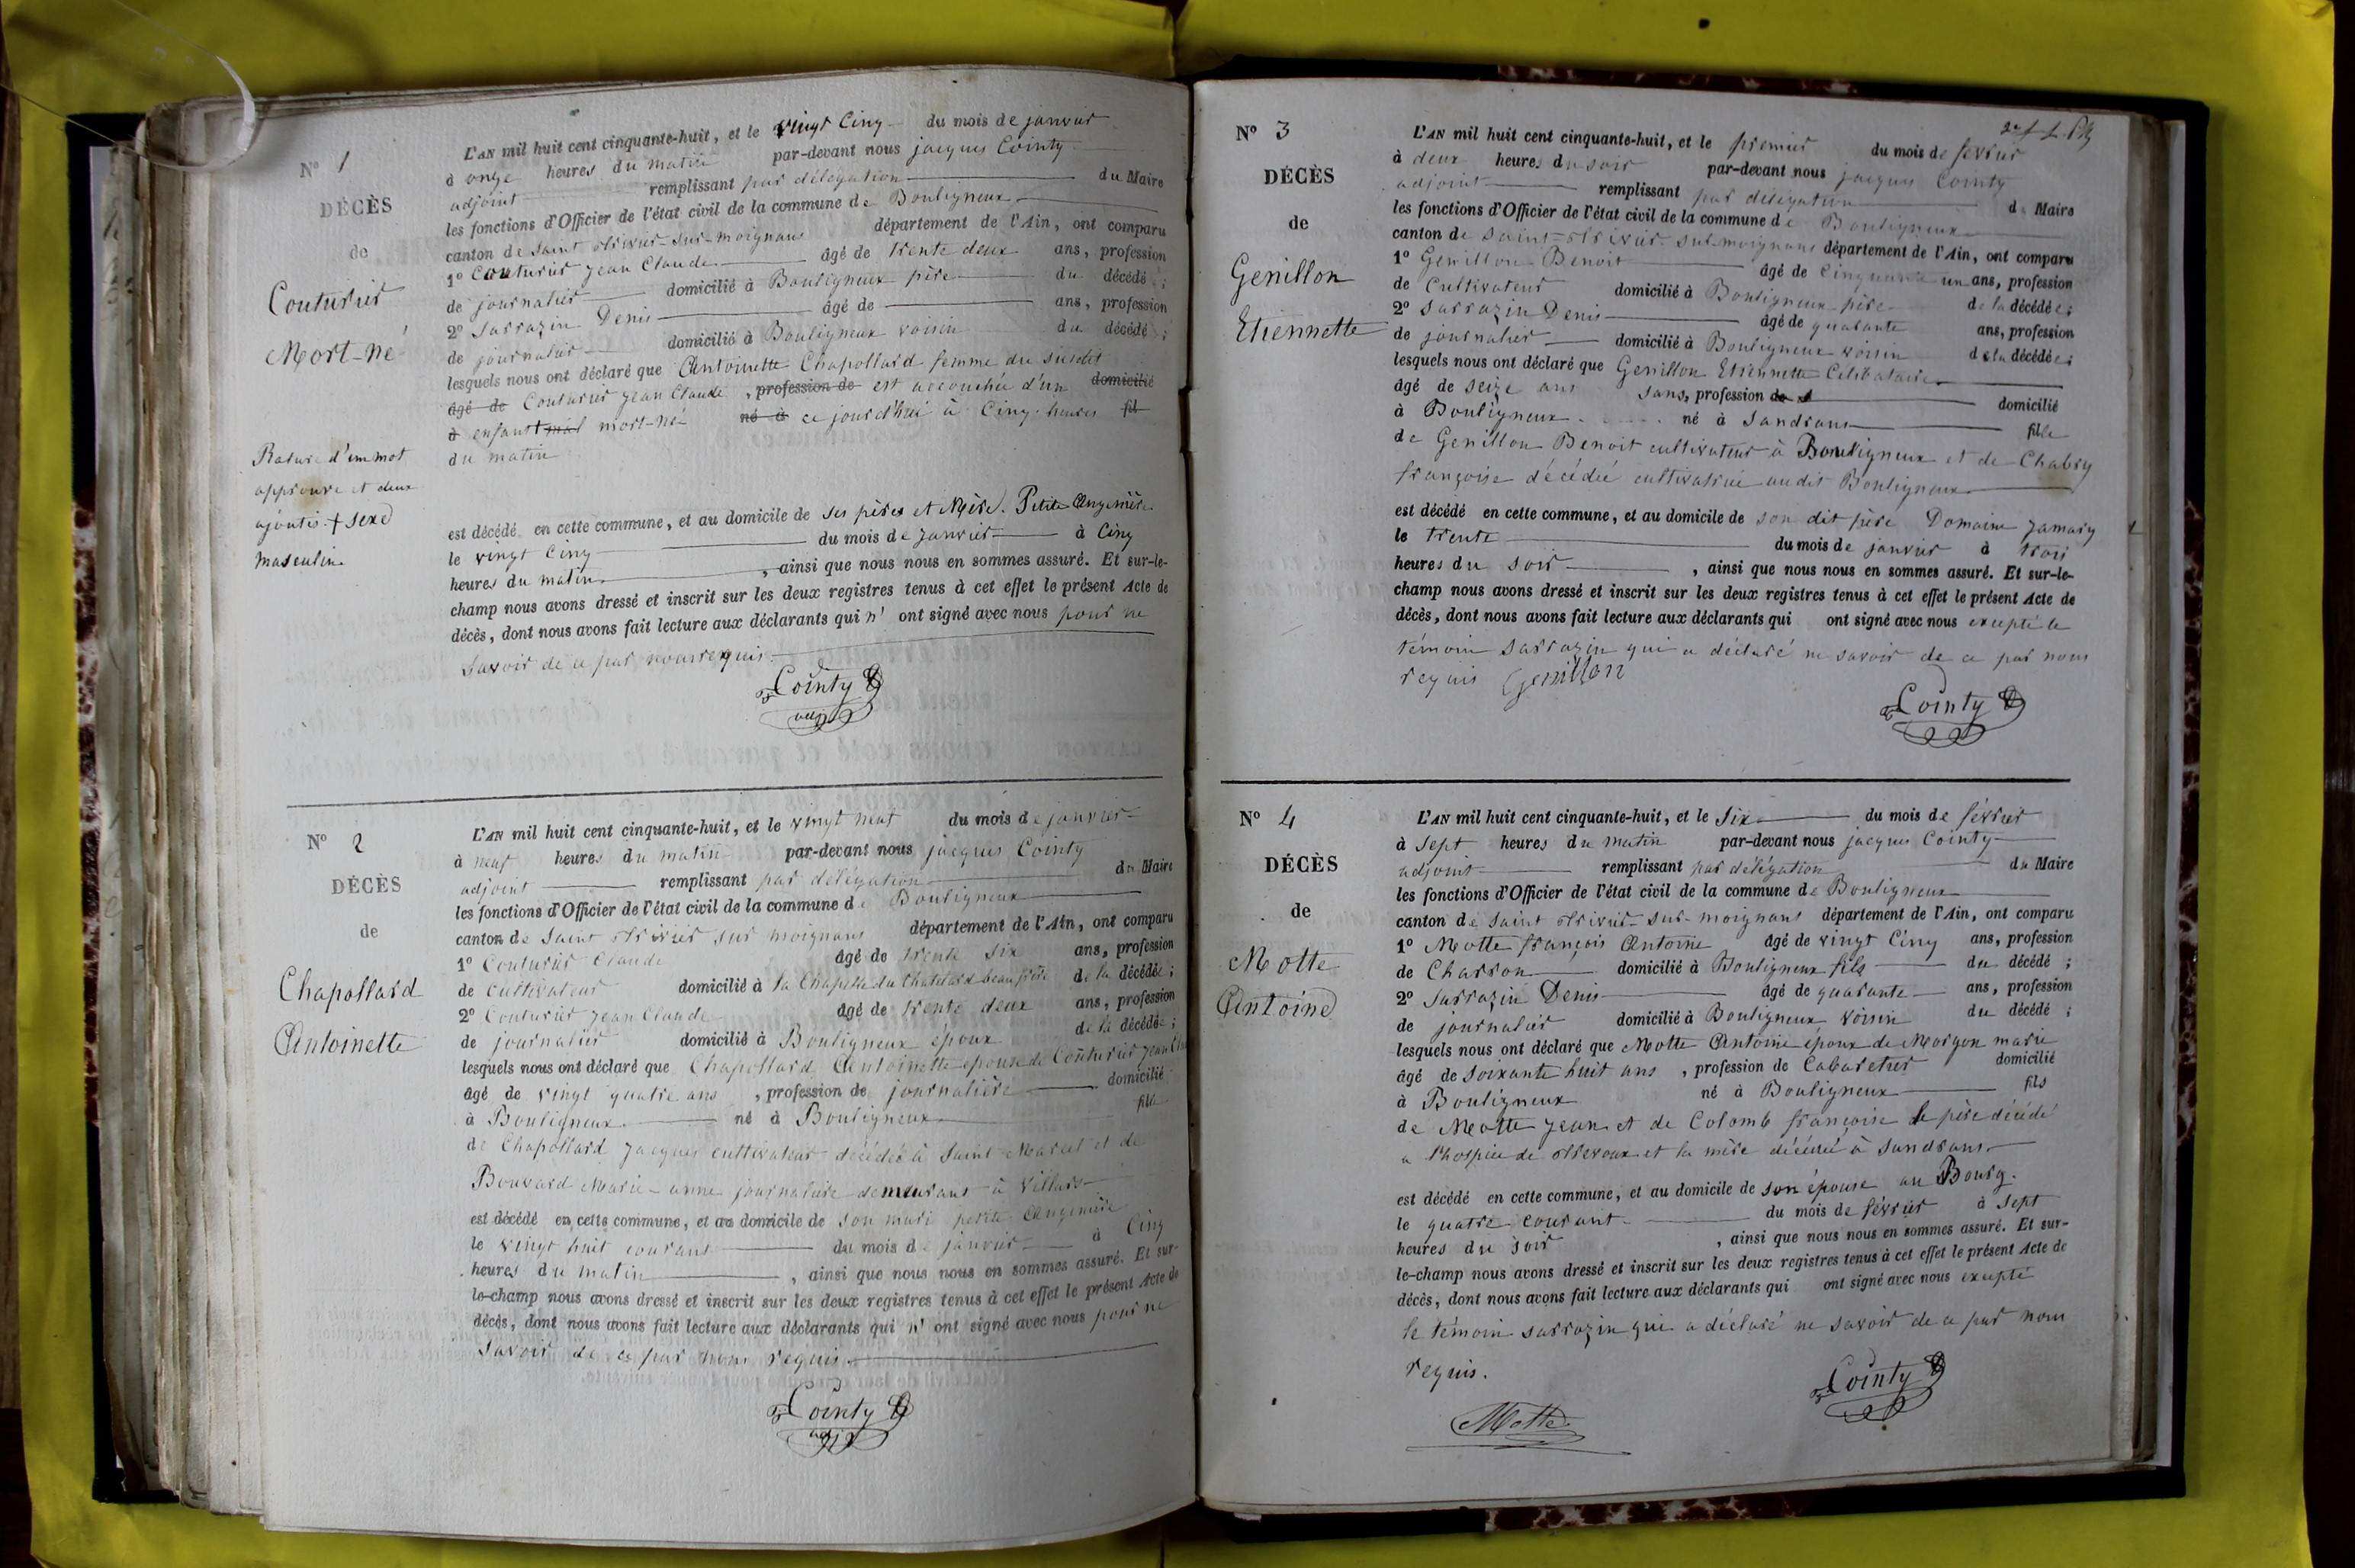 N° 1
DÉCÈS
de
Couturier
Mort-né
Rature d'un mot
approuvé et deux
ajoutés + sexe
masculin.
L'AN mil huit cent cinquante-huit, et le vingt Cinq du mois de janvier
à onze heures du matin par-devant nous jacques Cointy
adjoint remplissant par délégation du Maire
les fonctions d'Officier de l'état civil de la commune de Bouligneux
canton de saint trivier-sur-moignans département de l'Ain, ont comparu
1° Couturier jean Claude âgé de trente deux ans, profession
de journalier domicilié à Bouligneux père du décédé ;
2° Sarrazin Denis âgé de ans, profession
de journalier domicilié à Bouligneux voisin du décédé ;
lesquels nous ont déclaré que Antoinette Chapollard femme du susdit
âgé de Couturier jean Claude , profession de est accouchée d'un domicilié
à enfant + mal mort-né né à ce jourd'hui à Cinq heures fil
du matin
est décédé en cette commune, et au domicile de ses pères et Mère. Petite Angenière.
le vingt Cinq du mois de janvier à Cinq
heures du matin , ainsi que nous nous en sommes assuré. Et sur-le-
champ nous avons dressé et inscrit sur les deux registres tenus à cet effet le présent Acte de
décès, dont nous avons fait lecture aux déclarants qui n' ont signé avec nous pour ne
savoir de ce par nous requis.
Cointy
adj
N° 2
DÉCÈS
de
Chapollard
Antoinette
L'AN mil huit cent cinquante-huit, et le vingt neuf du mois de janvier
à neuf heures du matin par-devant nous jacques Cointy
adjoint remplissant par délégation du Maire
les fonctions d'Officier de l'état civil de la commune de Bouligneux
canton de saint trivier sur moignans département de l'Ain, ont comparu
1° Couturier Claude âgé de trente six ans, profession
de cultivateur domicilié à la Chapelle du Chatelard beau frère de la décédée ;
2° Couturier jean Claude âgé de trente deux ans, profession
de journalier domicilié à Bouligneux époux de la décédée ;
lesquels nous ont déclaré que Chapollard Antoinette épouse de Couturier jean
âgé de vingt quatre ans , profession de journalière domicilié
à Bouligneux né à Bouligneux fille
de Chapollard jacques cultivateur décédé à Saint Marcel et de
Bouvard Marie-anne journalière demeurant à Villars
est décédé en cette commune, et au domicile de son mari petite Angenière
le vingt huit courant du mois de janvier à Cinq
heures du matin , ainsi que nous nous en sommes assuré. Et sur-
le-champ nous avons dressé et inscrit sur les deux registres tenus à cet effet le présent Acte de
décès, dont nous avons fait lecture aux déclarants qui n' ont signé avec nous pour ne
savoir de ce par nous requis.
Cointy
adj
N° 3
DÉCÈS
de
Genillon
Etiennette
L'AN mil huit cent cinquante-huit, et le premier du mois de février
à deux heures du soir par-devant nous jacques Cointy
adjoint remplissant par délégation du Maire
les fonctions d'Officier de l'état civil de la commune de Bouligneux
canton de saint-trivier-sur-moignans département de l'Ain, ont comparu
1° Genillon Benoit âgé de cinquante un ans, profession
de Cultivateur domicilié à Bouligneux père de la décédée ;
2° Sarrazin Denis âgé de quarante ans, profession
de journalier domicilié à Bouligneux voisin de la décédée ;
lesquels nous ont déclaré que Genillon Etiennette Célibataire
âgé de seize ans sans, profession de domicilié
à Bouligneux né à Sandrans fille
de Genillon Benoit cultivateur à Bouligneux et de Chabry
françoise décédée cultivatrice audit Bouligneux
est décédé en cette commune, et au domicile de son dit père Domaine Jamary
le trente du mois de janvier à trois
heures du soir , ainsi que nous nous en sommes assuré. Et sur-le-
champ nous avons dressé et inscrit sur les deux registres tenus à cet effet le présent Acte de
décès, dont nous avons fait lecture aux déclarants qui ont signé avec nous excepté le
témoin sarrazin qui a déclaré ne savoir de ce par nous
requis Genillon
Cointy
N° 4
DÉCÈS
de
Motte
Antoine
L'AN mil huit cent cinquante-huit, et le Six du mois de février
à sept heures du matin par-devant nous jacques Cointy
adjoint remplissant par délégation du Maire
les fonctions d'Officier de l'état civil de la commune de Bouligneux
canton de saint trivier-sur-moignans département de l'Ain, ont comparu
1° Motte françois Antoine âgé de vingt Cinq ans, profession
de Charron domicilié à Bouligneux fils du décédé ;
2° Sarrazin Denis âgé de quarante ans, profession
de journalier domicilié à Bouligneux voisin du décédé ;
lesquels nous ont déclaré que Motte Antoine époux de Morgon marie
âgé de soixante huit ans , profession de Cabaretier domicilié
à Bouligneux né à Bouligneux fils
de Motte jean et de Colomb françoise le père décédé
a l'hospice de trévoux et la mère décédée à Sandrans
est décédé en cette commune, et au domicile de son épouse au Bourg.
le quatre courant du mois de février à sept
heures du soir , ainsi que nous nous en sommes assuré. Et sur-
le-champ nous avons dressé et inscrit sur les deux registres tenus à cet effet le présent Acte de
décès, dont nous avons fait lecture aux déclarants qui ont signé avec nous excepté
le témoin sarrazin qui a déclaré ne savoir de ce par nous
requis.
Cointy
Motte